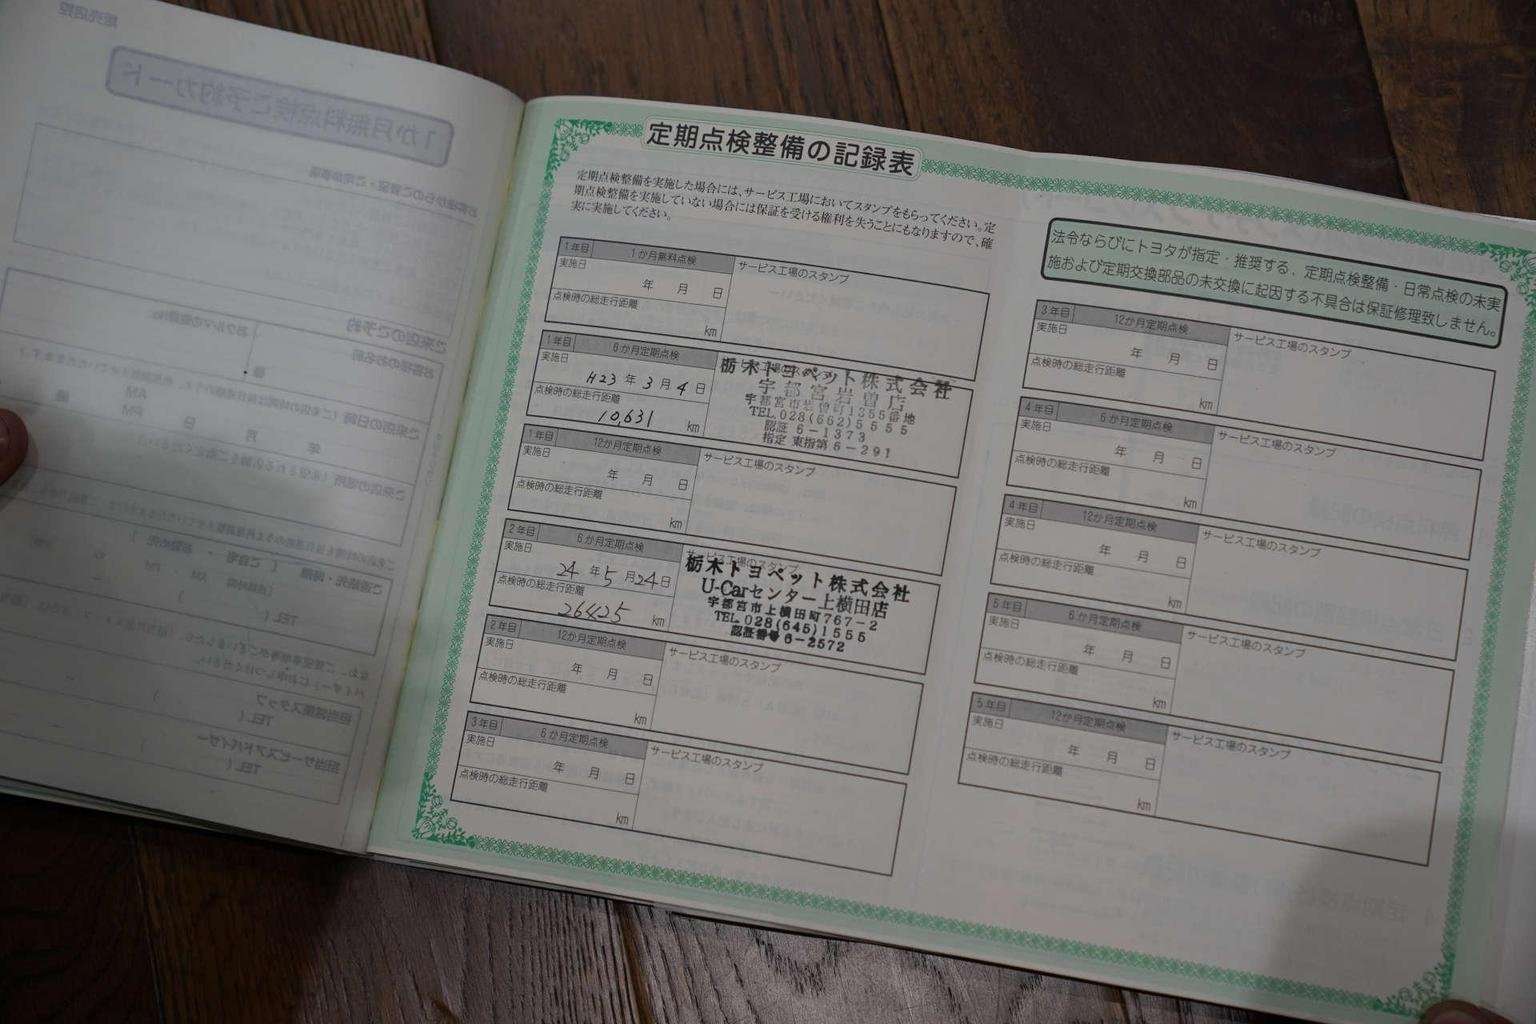 定期点検整備の記録表
定期点検整備を実施した場合には、サービス工場においてスタンプをもらってください。定
期点検整備を実施していない場合には保証を受ける権利を失うことにもなりますので、確
実に実施してください。
1年目 1か月無料点検 サービス工場のスタンプ
実施日
年 月 日
点検時の総走行距離
km
1年目 6か月定期点検
実施日
H23年3月4日
点検時の総走行距離
10,631 km
栃木トヨペット株式会社
宇都宮岩曽店
宇都宮市岩曽町1355番地
TEL 028(662)5555
認証 6-1373
指定 東指第6-291
1年目 12か月定期点検 サービス工場のスタンプ
実施日
年 月 日
点検時の総走行距離
km
2年目 6か月定期点検 サービス工場のスタンプ
実施日
24年5月24日
点検時の総走行距離
26425
栃木トヨペット株式会社
U-Carセンター上横田店
宇都宮市上横田町767-2
TEL 028(645)1555
認証番号 6-2572
2年目 12か月定期点検 サービス工場のスタンプ
実施日
年 月 日
点検時の総走行距離
km
3年目 6か月定期点検 サービス工場のスタンプ
実施日
年 月 日
点検時の総走行距離
km
法令ならびにトヨタが指定・推奨する、定期点検整備・日常点検の未実
施および定期交換部品の未交換に起因する不具合は保証修理致しません。
3年目 12か月定期点検 サービス工場のスタンプ
実施日
年 月 日
点検時の総走行距離
km
4年目 6か月定期点検 サービス工場のスタンプ
実施日
年 月 日
点検時の総走行距離
km
4年目 12か月定期点検 サービス工場のスタンプ
実施日
年 月 日
点検時の総走行距離
km
5年目 6か月定期点検 サービス工場のスタンプ
実施日
年 月 日
点検時の総走行距離
km
5年目 12か月定期点検 サービス工場のスタンプ
実施日
年 月 日
点検時の総走行距離
km